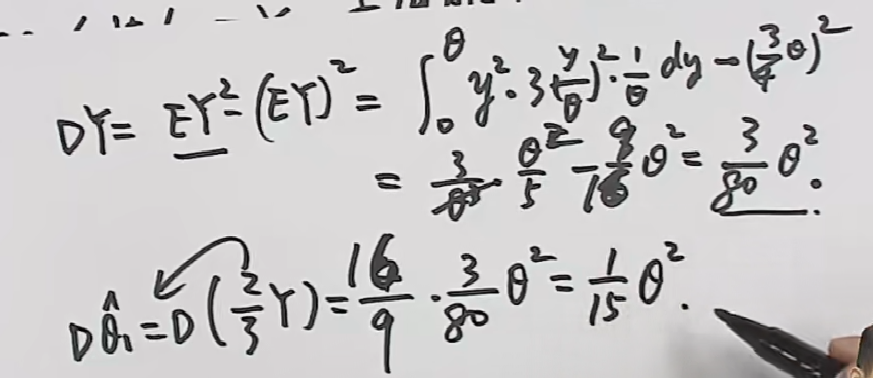 DY = EY² - (EY)² = ∫₀^θ y²·3(y/θ)²·1/θ dy - (3/4 θ)²
= 3/θ³ · θ²/5 - 9/16 θ² = 3/80 θ².
Dθ̂₁ = D(2/3 Y) = 16/9 · 3/80 θ² = 1/15 θ².